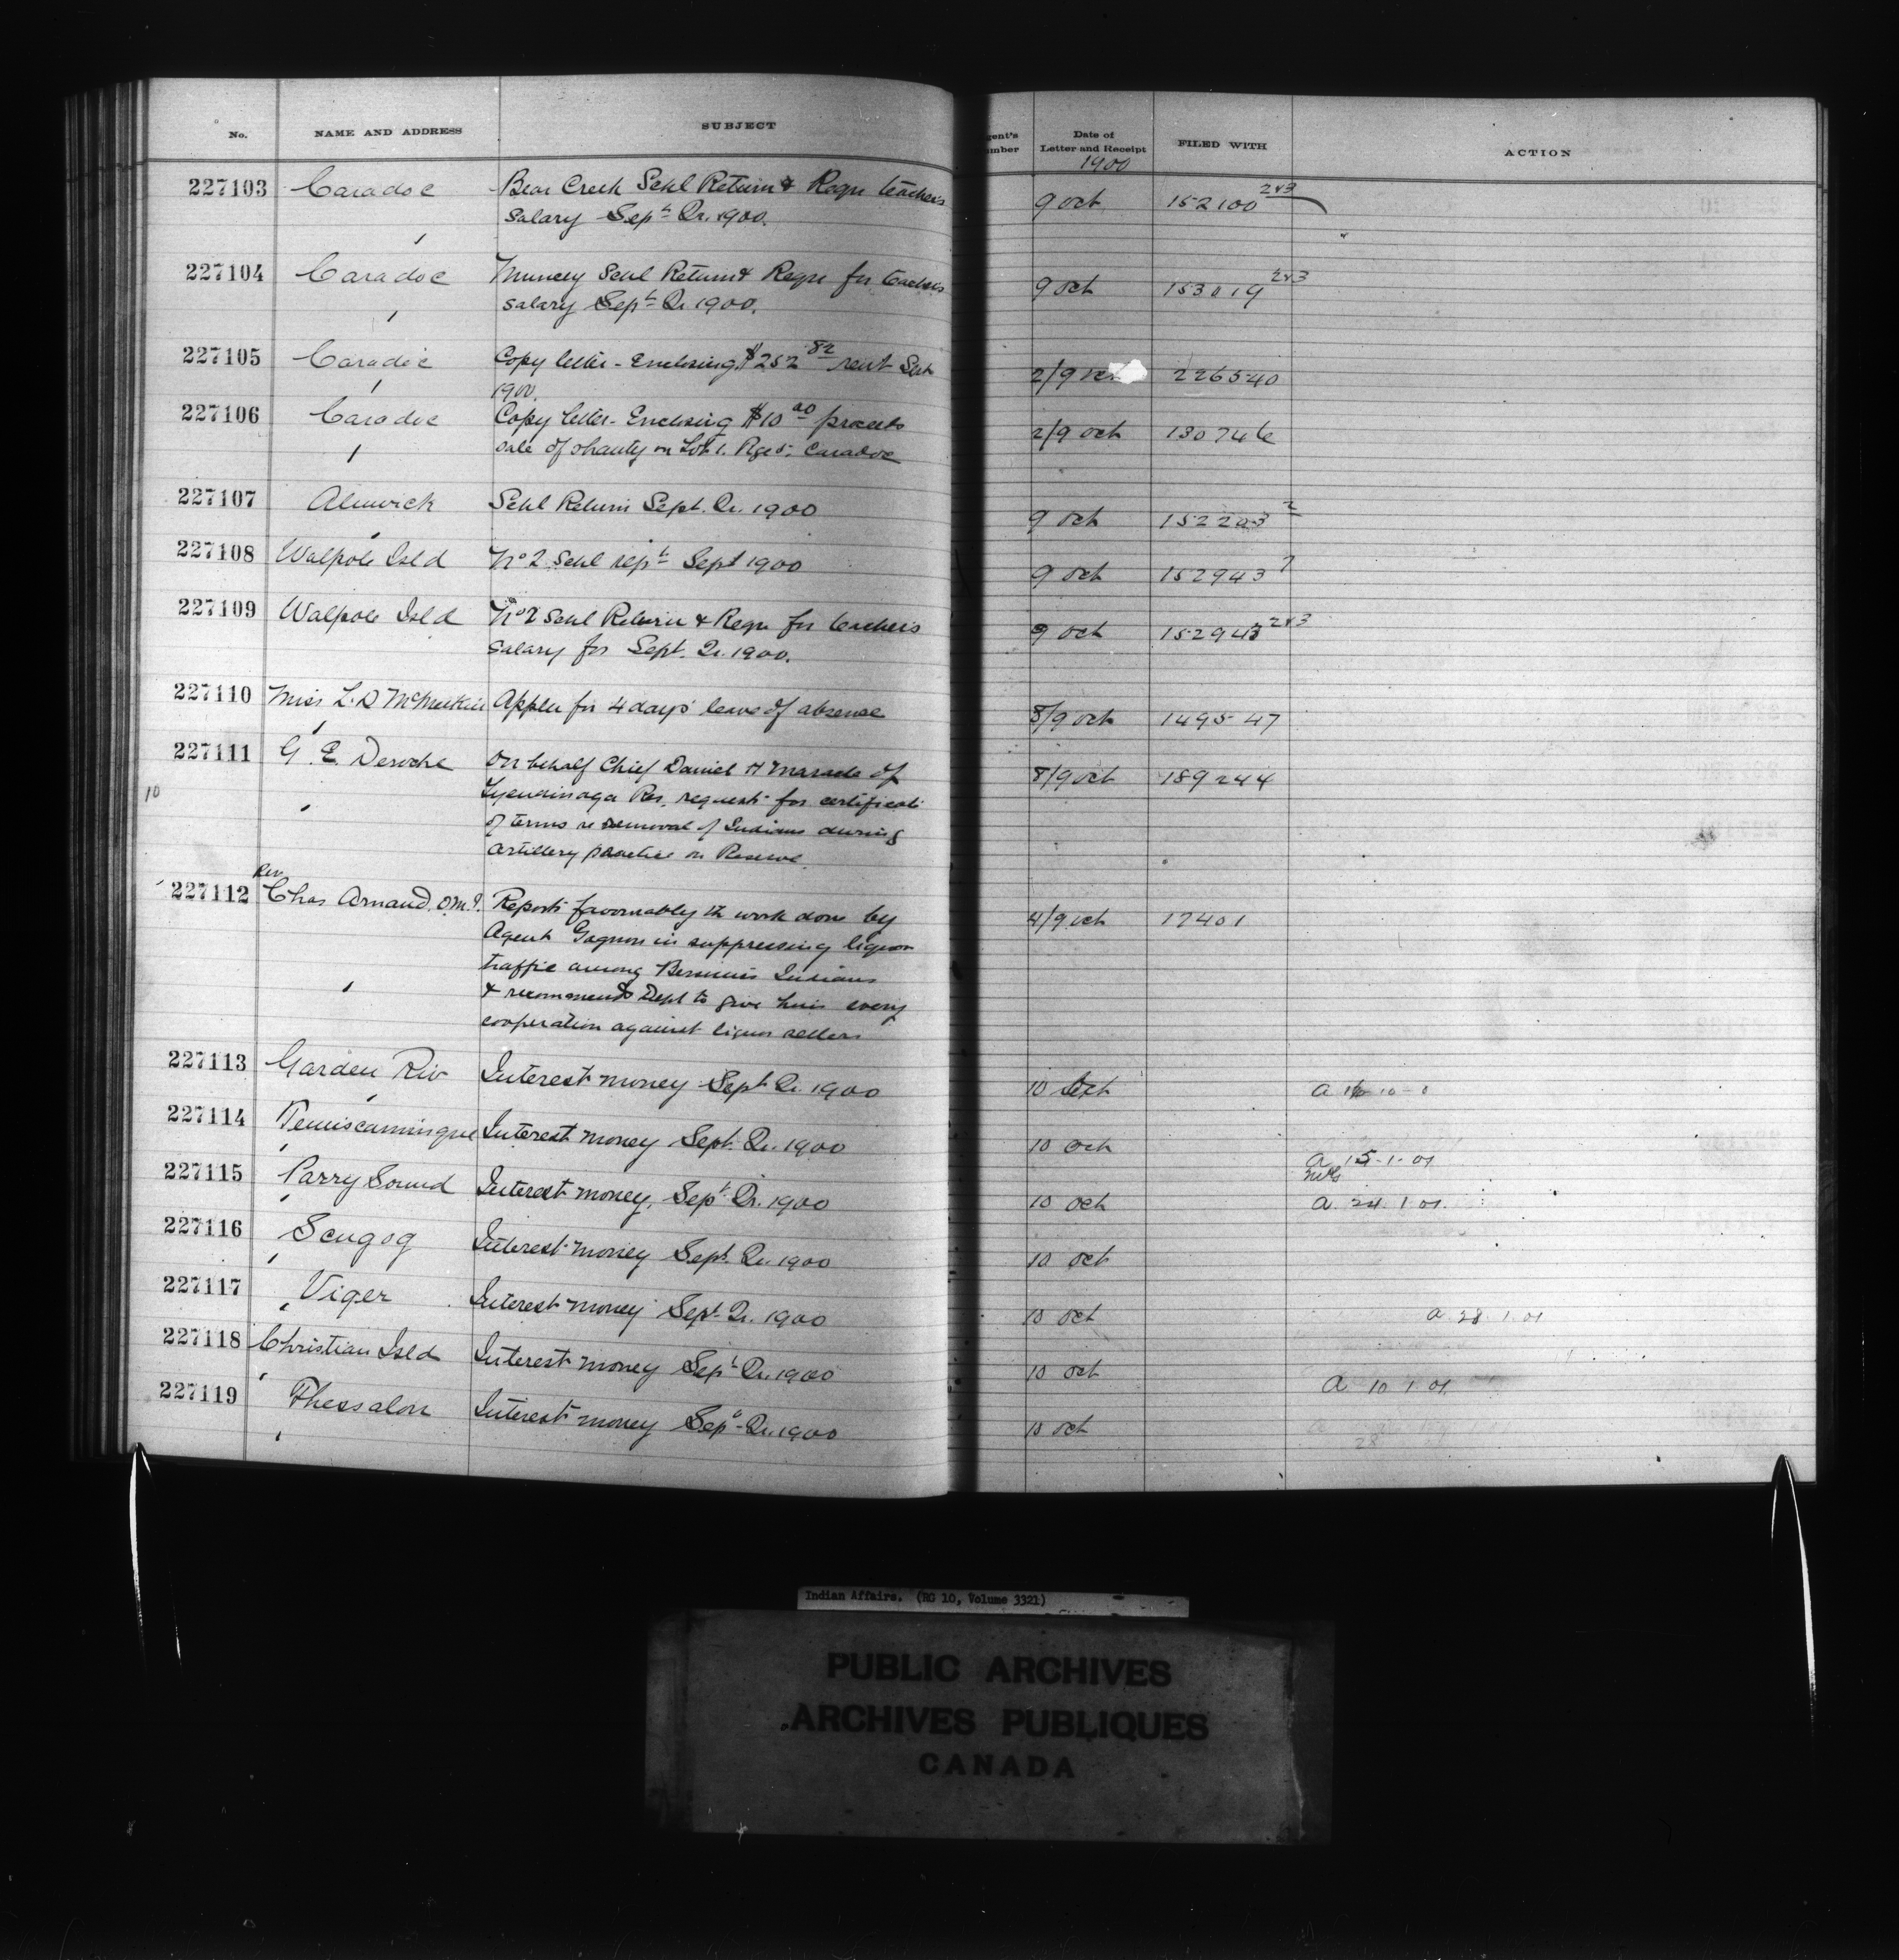 No. NAME AND ADDRESS SUBJECT gent's mber Date of Letter and Receipt FILED WITH ACTION
1900
227103 Caradoc Bear Creek Schl Return & Requ teachers 9 Oct 152100 2&3
salary Sept Qr. 1900.
227104 Caradoc Muncey Schl Return & Requ for teachers 9 Oct 153019 2&3
salary Sept Qr 1900.
227105 Caradoc Copy letter - Enclosing $252 82 rent 2/9 Oct 226540
1900.
227106 Caradoc Copy letter - Enclosing $10 00 proceeds 2/9 Oct 130746
sale of shanty on Lot 1. Rge 5. Caradoc
227107 Alnwick Schl Return Sept. Qr. 1900 9 Oct 152203 2
227108 Walpole Isld No 2 Schl rept Sept 1900 9 Oct 152943
227109 Walpole Isld No 2 Schl Return & Requ for teachers 9 Oct 152943 2&3
salary for Sept. Qr. 1900.
227110 Miss L. D Applies for 4 days' leave of absence 8/9 Oct 149547
227111 G. E. Deroche On behalf Chief Daniel H Maracle of 8/9 Oct 189244
10 Tyendinaga Res. requests for certificate
of terms re removal of Indians during
artillery practice on Reserve
Rev
227112 Chas Arnaud. O.M.I. Reports favourably th work done by 4/9 Oct 17401
Agent Gagnon in suppressing liquor
traffic among Bersimis Indians
& recommends Dept to give him every
cooperation against liquor sellers
227113 Garden Riv Interest money Sept Qr. 1900 10 Oct
227114 Temiscamingue Interest money Sept. Qr. 1900 10 Oct
a 15-1-01
227115 Parry Sound Interest money, Sept Qr. 1900 10 Oct a. 24. 1. 01.
227116 Scugog Interest money Sept. Qr. 1900 10 Oct
227117 Viger Interest money Sept Qr. 1900 10 Oct a 28. 1. 01
227118 Christian Isld Interest money Sept Qr. 1900 10 Oct
a 10 1 01
227119 Thessalon Interest money Sept Qr. 1900 10 Oct
28
Indian Affairs. (RG 10, Volume 3321)
PUBLIC ARCHIVES
ARCHIVES PUBLIQUES
CANADA